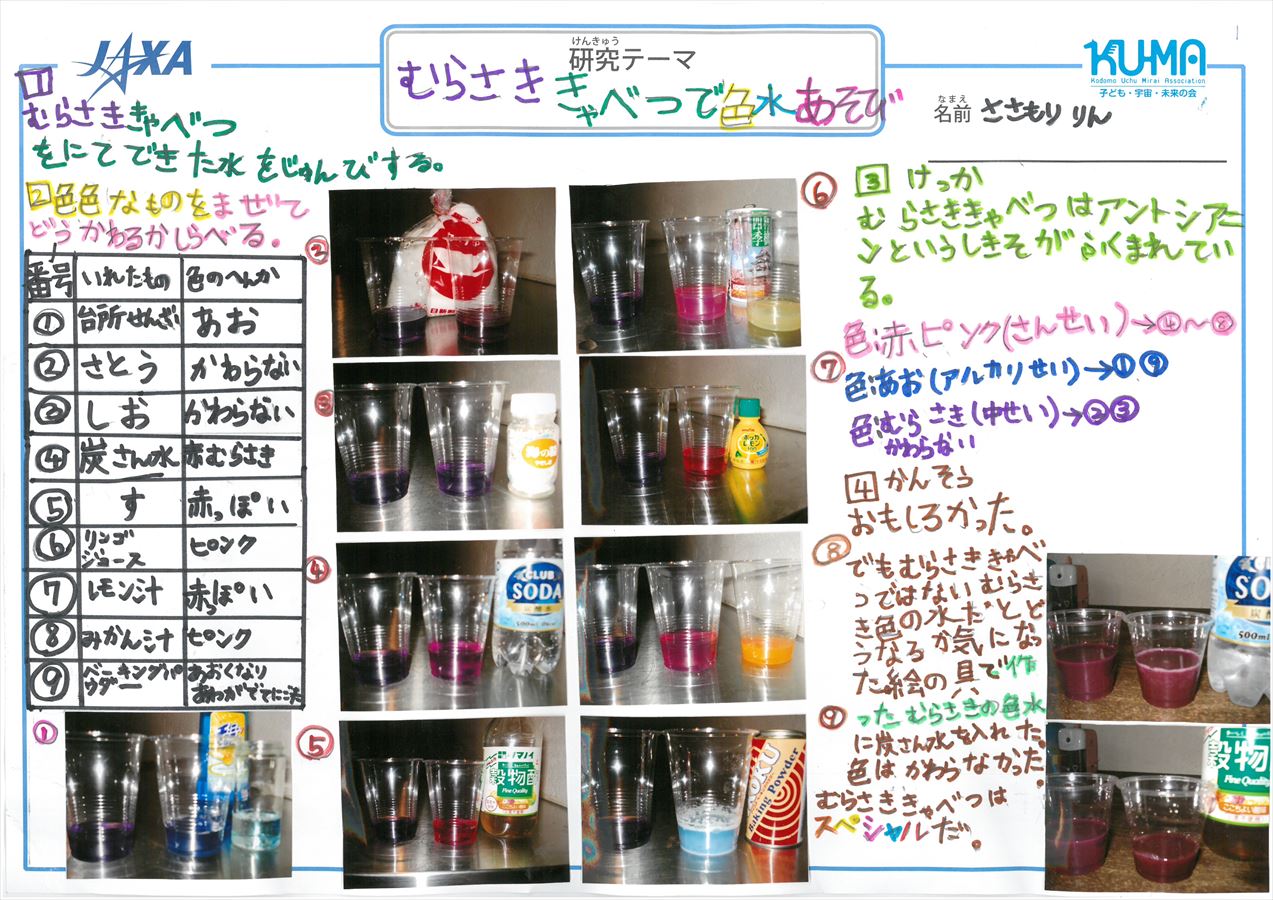 JAXA
けんきゅう
研究テーマ
むらさききゃべつで色水あそび
KUMA
Kodomo Uchu Mirai Association
子ども・宇宙・未来の会
なまえ
名前 ささもり りん
1
むらさききゃべつ
をにてできた水をじゅんびする。
2 色色なものをまぜて
どうかわるかしらべる。
番号 いれたもの 色のへんか
① 台所せんざい あお
② さとう かわらない
③ しお かわらない
④ 炭さん水 赤むらさき
⑤ す 赤っぽい
⑥ リンゴジュース ピンク
⑦ レモン汁 赤っぽい
⑧ みかん汁 ピンク
⑨ ベーキングパウダー あおくなり
①
②
③
④
CLUB
SODA
炭酸水
500ml
⑤
穀物酢
Fine Quality
⑥
⑦
ポッカ
レモン
⑧
⑨
Baking Powder
3 けっか
むらさききゃべつはアントシアニ
ンというしきそがふくまれてい
る。
色:赤、ピンク(さんせい)→④~⑧
色:あお(アルカリせい)→①⑨
色:むらさき(中せい)→②③
かわらない
4 かんそう
おもしろかった。
でもむらさききゃべ
つではないむらさ
き色の水だとど
うなるか気になっ
た絵の具で作
ったむらさきの色水
に炭さん水を入れた。
色はかわらなかった。
むらさききゃべつは
スペシャルだ。
SODA
500ml
穀物酢
Fine Quality